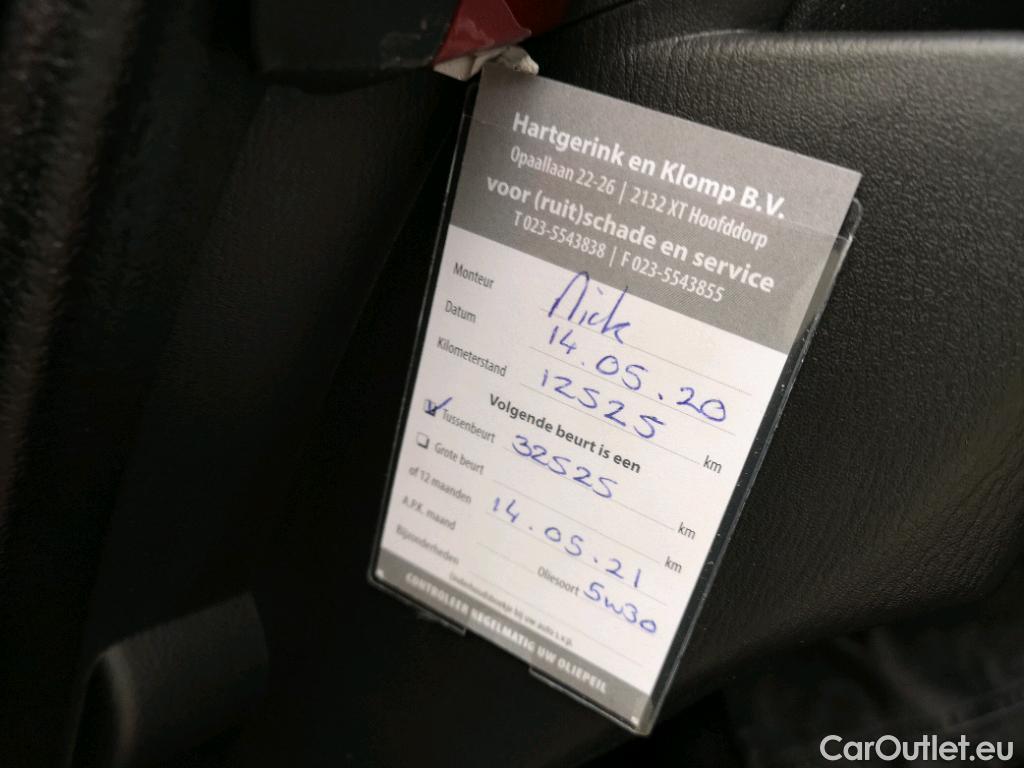 Hartgerink en Klomp B.V.
Opaallaan 22-26 | 2132 XT Hoofddorp
voor (ruit)schade en service
T 023-5543838 | F 023-5543855
Monteur Nick
Datum 14.05.20
Kilometerstand 12525 km
Volgende beurt is een
Tussenbeurt 32525 km
Grote beurt km
of 12 maanden 14.05.21
A.P.K. maand
Bijzonderheden Oliesoort 5w30
Onderhoudsboekje bij uw auto s.v.p.
CONTROLEER REGELMATIG UW OLIEPEIL
CarOutlet.eu